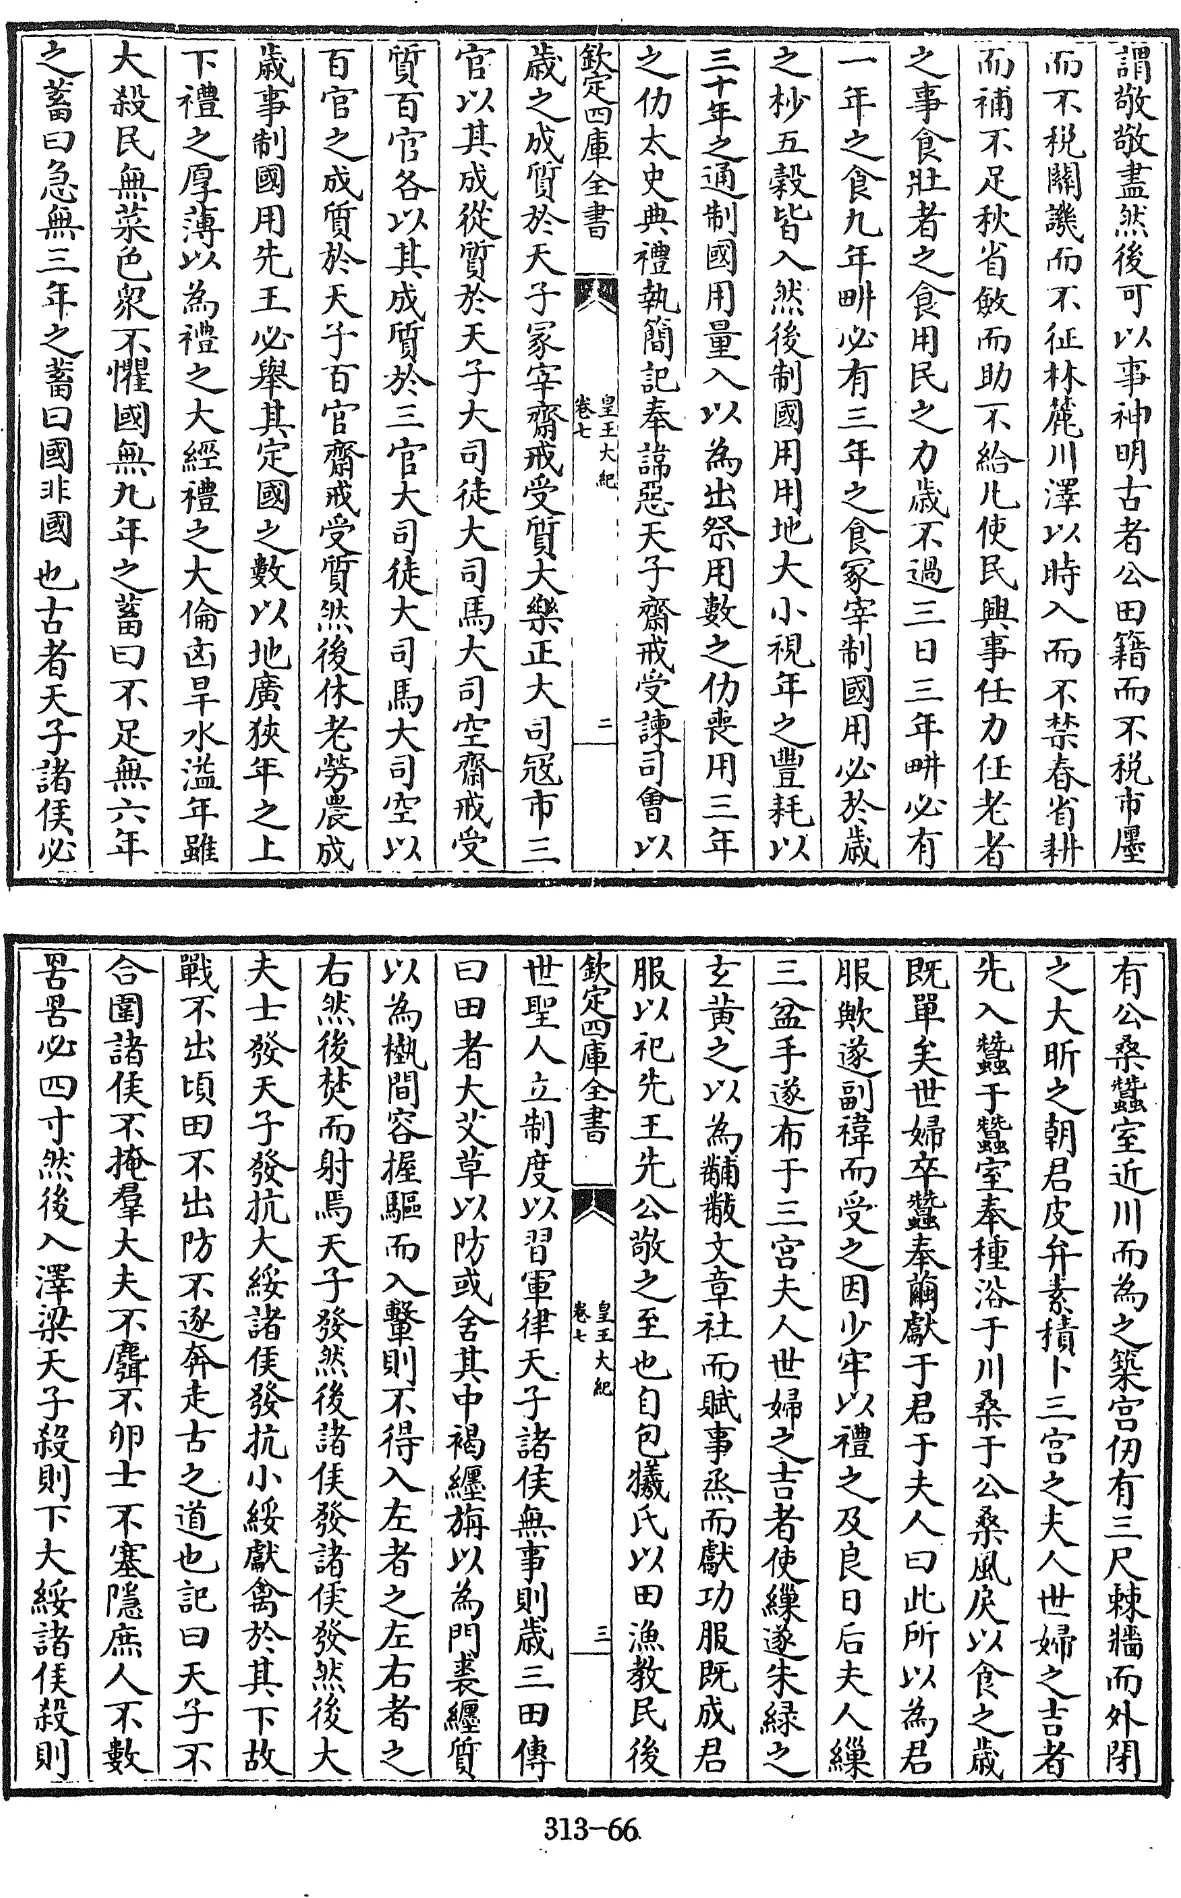 謂敬敬盡然後可以事神明古者公田籍而不税市㕓
而不税關譏而不征林麓川澤以時入而不禁春省耕
而補不足秋省斂而助不給凡使民興事任力任老者
之事食壯者之食用民之力歲不過三日三年畊必有
一年之食九年畊必有三年之食冢宰制國用必於歲
之杪五穀皆入然後制國用用地大小視年之豐耗以
三十年之通制國用量入以為出祭用數之仂喪用三年
之仂太史典禮執簡記奉諱惡天子齋戒受諫司會以
欽定四庫全書
皇王大紀
卷七
二
歲之成質於天子冢宰齋戒受質大樂正大司寇市三
官以其成從質於天子大司徒大司馬大司空齋戒受
質百官各以其成質於三官大司徒大司馬大司空以
百官之成質於天子百官齋戒受質然後休老勞農成
歲事制國用先王必舉其定國之數以地廣狹年之上
下禮之厚薄以為禮之大經禮之大倫凶旱水溢年雖
大殺民無菜色衆不懼國無九年之蓄曰不足無六年
之蓄曰急無三年之蓄曰國非國也古者天子諸侯必
有公桑蠶室近川而為之築宮仞有三尺棘牆而外閉
之大昕之朝君皮弁素積卜三宮之夫人世婦之吉者
先入蠶于蠶室奉種浴于川桑于公桑風戾以食之歲
既單矣世婦卒蠶奉繭獻于君于夫人曰此所以為君
服歟遂副褘而受之因少牢以禮之及良日后夫人繅
三盆手遂布于三宮夫人世婦之吉者使繅遂朱緑之
玄黄之以為黼黻文章社而賦事烝而獻功服既成君
服以祀先王先公敬之至也自包犧氏以田漁教民後
欽定四庫全書
皇王大紀
卷七
三
世聖人立制度以習軍律天子諸侯無事則歲三田傳
曰田者大艾草以防或舍其中褐纒旃以為門裘纒質
以為槸間容握驅而入轚則不得入左者之左右者之
右然後焚而射焉天子發然後諸侯發諸侯發然後大
夫士發天子發抗大綏諸侯發抗小綏獻禽於其下故
戰不出頃田不出防不逐奔走古之道也記曰天子不
合圍諸侯不掩羣大夫不麛不卵士不塞隱庶人不數
罟罟必四寸然後入澤梁天子殺則下大綏諸侯殺則
313-66